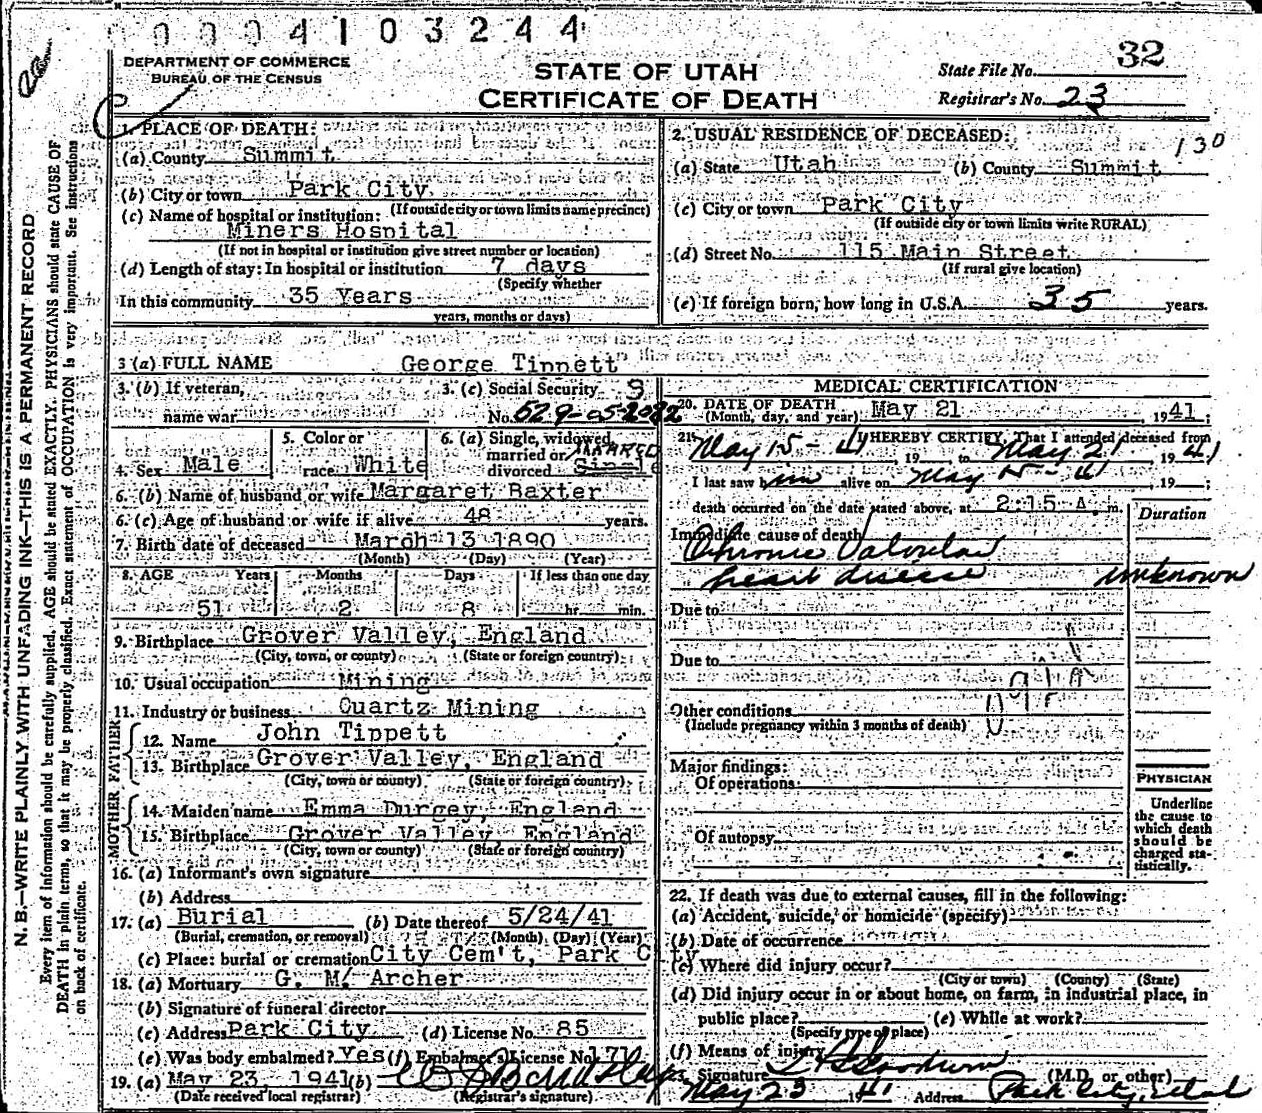 00004103244
DEPARTMENT OF COMMERCE
BUREAU OF THE CENSUS
STATE OF UTAH
CERTIFICATE OF DEATH
State File No. 32
Registrar's No. 23
130
N. B.—WRITE PLAINLY, WITH UNFADING INK—THIS IS A PERMANENT RECORD
Every item of information should be carefully supplied. AGE should be stated EXACTLY. PHYSICIANS should state CAUSE OF
DEATH in plain terms, so that it may be properly classified. Exact statement of OCCUPATION is very important. See instructions
on back of certificate.
1. PLACE OF DEATH:
(a) County Summit
(b) City or town Park City
(If outside city or town limits name precinct)
(c) Name of hospital or institution:
Miners Hospital
(If not in hospital or institution give street number or location)
(d) Length of stay: In hospital or institution 7 days
(Specify whether
In this community 35 Years
years, months or days)
2. USUAL RESIDENCE OF DECEASED:
(a) State Utah (b) County Summit
(c) City or town Park City
(If outside city or town limits write RURAL)
(d) Street No. 115 Main Street
(If rural give location)
(e) If foreign born, how long in U.S.A. 35 years.
3 (a) FULL NAME George Tippett
3. (b) If veteran, 3. (c) Social Security
name war No. 529-05-2022
4. Sex Male 5. Color or race White 6. (a) Single, widowed, married or divorced Single MARRED
6. (b) Name of husband or wife Margaret Baxter
6. (c) Age of husband or wife if alive 48 years.
7. Birth date of deceased March 13 1890
(Month) (Day) (Year)
8. AGE Years Months Days If less than one day
51 2 8 hr. min.
9. Birthplace Grover Valley, England
(City, town, or county) (State or foreign country)
10. Usual occupation Mining
11. Industry or business Quartz Mining
FATHER
12. Name John Tippett
13. Birthplace Grover Valley, England
(City, town or county) (State or foreign country)
MOTHER
14. Maiden name Emma Durgey, England
15. Birthplace Grover Valley England
(City, town or county) (State or foreign country)
16. (a) Informant's own signature
(b) Address
17. (a) Burial (b) Date thereof 5/24/41
(Burial, cremation, or removal) (Month) (Day) (Year)
(c) Place: burial or cremation City Cem't, Park City
18. (a) Mortuary G. M. Archer
(b) Signature of funeral director
(c) Address Park City (d) License No. 85
(e) Was body embalmed? Yes (f) Embalmer's License No. 171
19. (a) May 23, 1941 (b)
(Date received local registrar) (Registrar's signature)
MEDICAL CERTIFICATION
20. DATE OF DEATH May 21 1941;
(Month, day, and year)
21. I HEREBY CERTIFY, That I attended deceased from
May 15-41 19 to May 21 1941
I last saw him alive on May 19 ;
death occurred on the date stated above, at 2:15 A. m.
Duration
Immediate cause of death
Chronic Valvular
heart disease unknown
Due to
Due to
Other conditions
(Include pregnancy within 3 months of death)
Major findings:
Of operations
Of autopsy
PHYSICIAN
Underline
the cause to
which death
should be
charged sta-
tistically.
22. If death was due to external causes, fill in the following:
(a) Accident, suicide, or homicide (specify)
(b) Date of occurrence
(c) Where did injury occur?
(City or town) (County) (State)
(d) Did injury occur in or about home, on farm, in industrial place, in
public place? (e) While at work?
(Specify type of place)
(f) Means of injury
23. Signature (M.D. or other)
May 23 1941 Address Park City, Utah